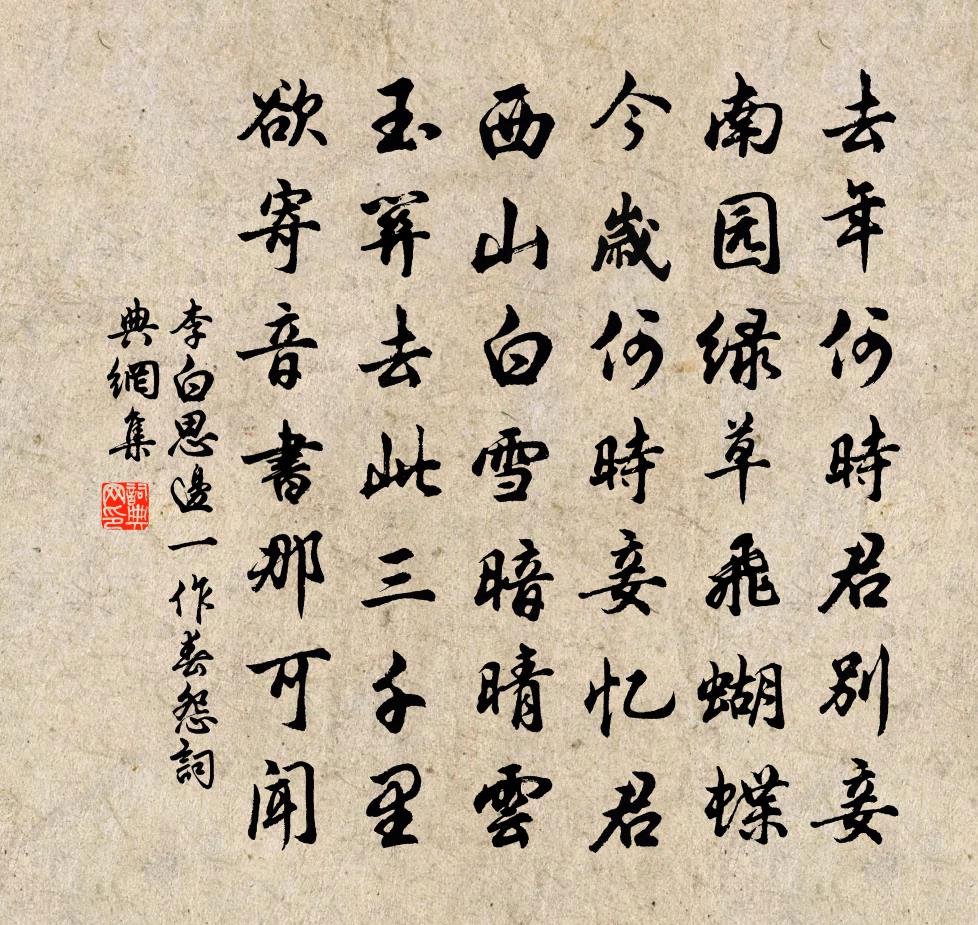 去年何時君别妾
南园绿草飛蝴蝶
今歲何時妾忆君
西山白雪暗晴雲
玉関去此三千里
欲寄音書那可聞
李白思邊一作春怨詞
典網集
詞典网印